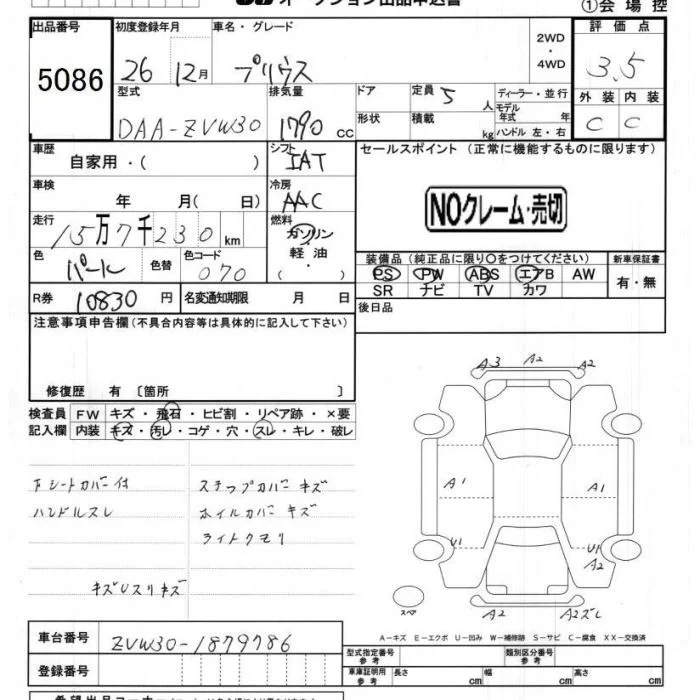 オークション出品申込書
①会場控
出品番号 初度登録年月 車名・グレード 2WD・4WD 評価点
5086 26 12月 プリウス 3.5
型式 排気量 ドア 定員 5人 ディーラー・並行 外装 内装
DAA-ZVW30 1790cc 形状 積載 kg モデル年式 年 ハンドル 左・右 C C
車歴 シフト セールスポイント (正常に機能するものに限ります)
自家用・( ) IAT
車検 冷房
年 月( 日) AAC NOクレーム・売切
走行 燃料
15万7千230km ガソリン
軽油
色 色替 色コード ( ・ ) 装備品 (純正品に限り○をつけてください) 新車保証書
パール 070 PS PW ABS エアB AW 有・無
R券 10830円 名変通知期限 月 日 SR ナビ TV カワ
注意事項申告欄(不具合内容等は具体的に記入して下さい) 後日品
修復歴 有 〔箇所 〕
検査員 FW キズ・飛石・ヒビ割・リペア跡・×要
記入欄 内装 キズ・汚レ・コゲ・穴・スレ・キレ・破レ
A3 A2 A2
シートカバー付 ステップカバーキズ A1 A1
ハンドルスレ ホイルカバーキズ
ライトクモリ U1 U1
A2
キズUスリキズ
スペア A2 A2ズレ
車台番号 ZVW30-1879786 A-キズ E-エクボ U-凹み W-補修跡 S-サビ C-腐食 XX-交換済
型式指定番号 参考 類別区分番号 参考
登録番号 車庫証明用 参考 長さ cm 幅 cm 高さ cm
希望出品コーナー